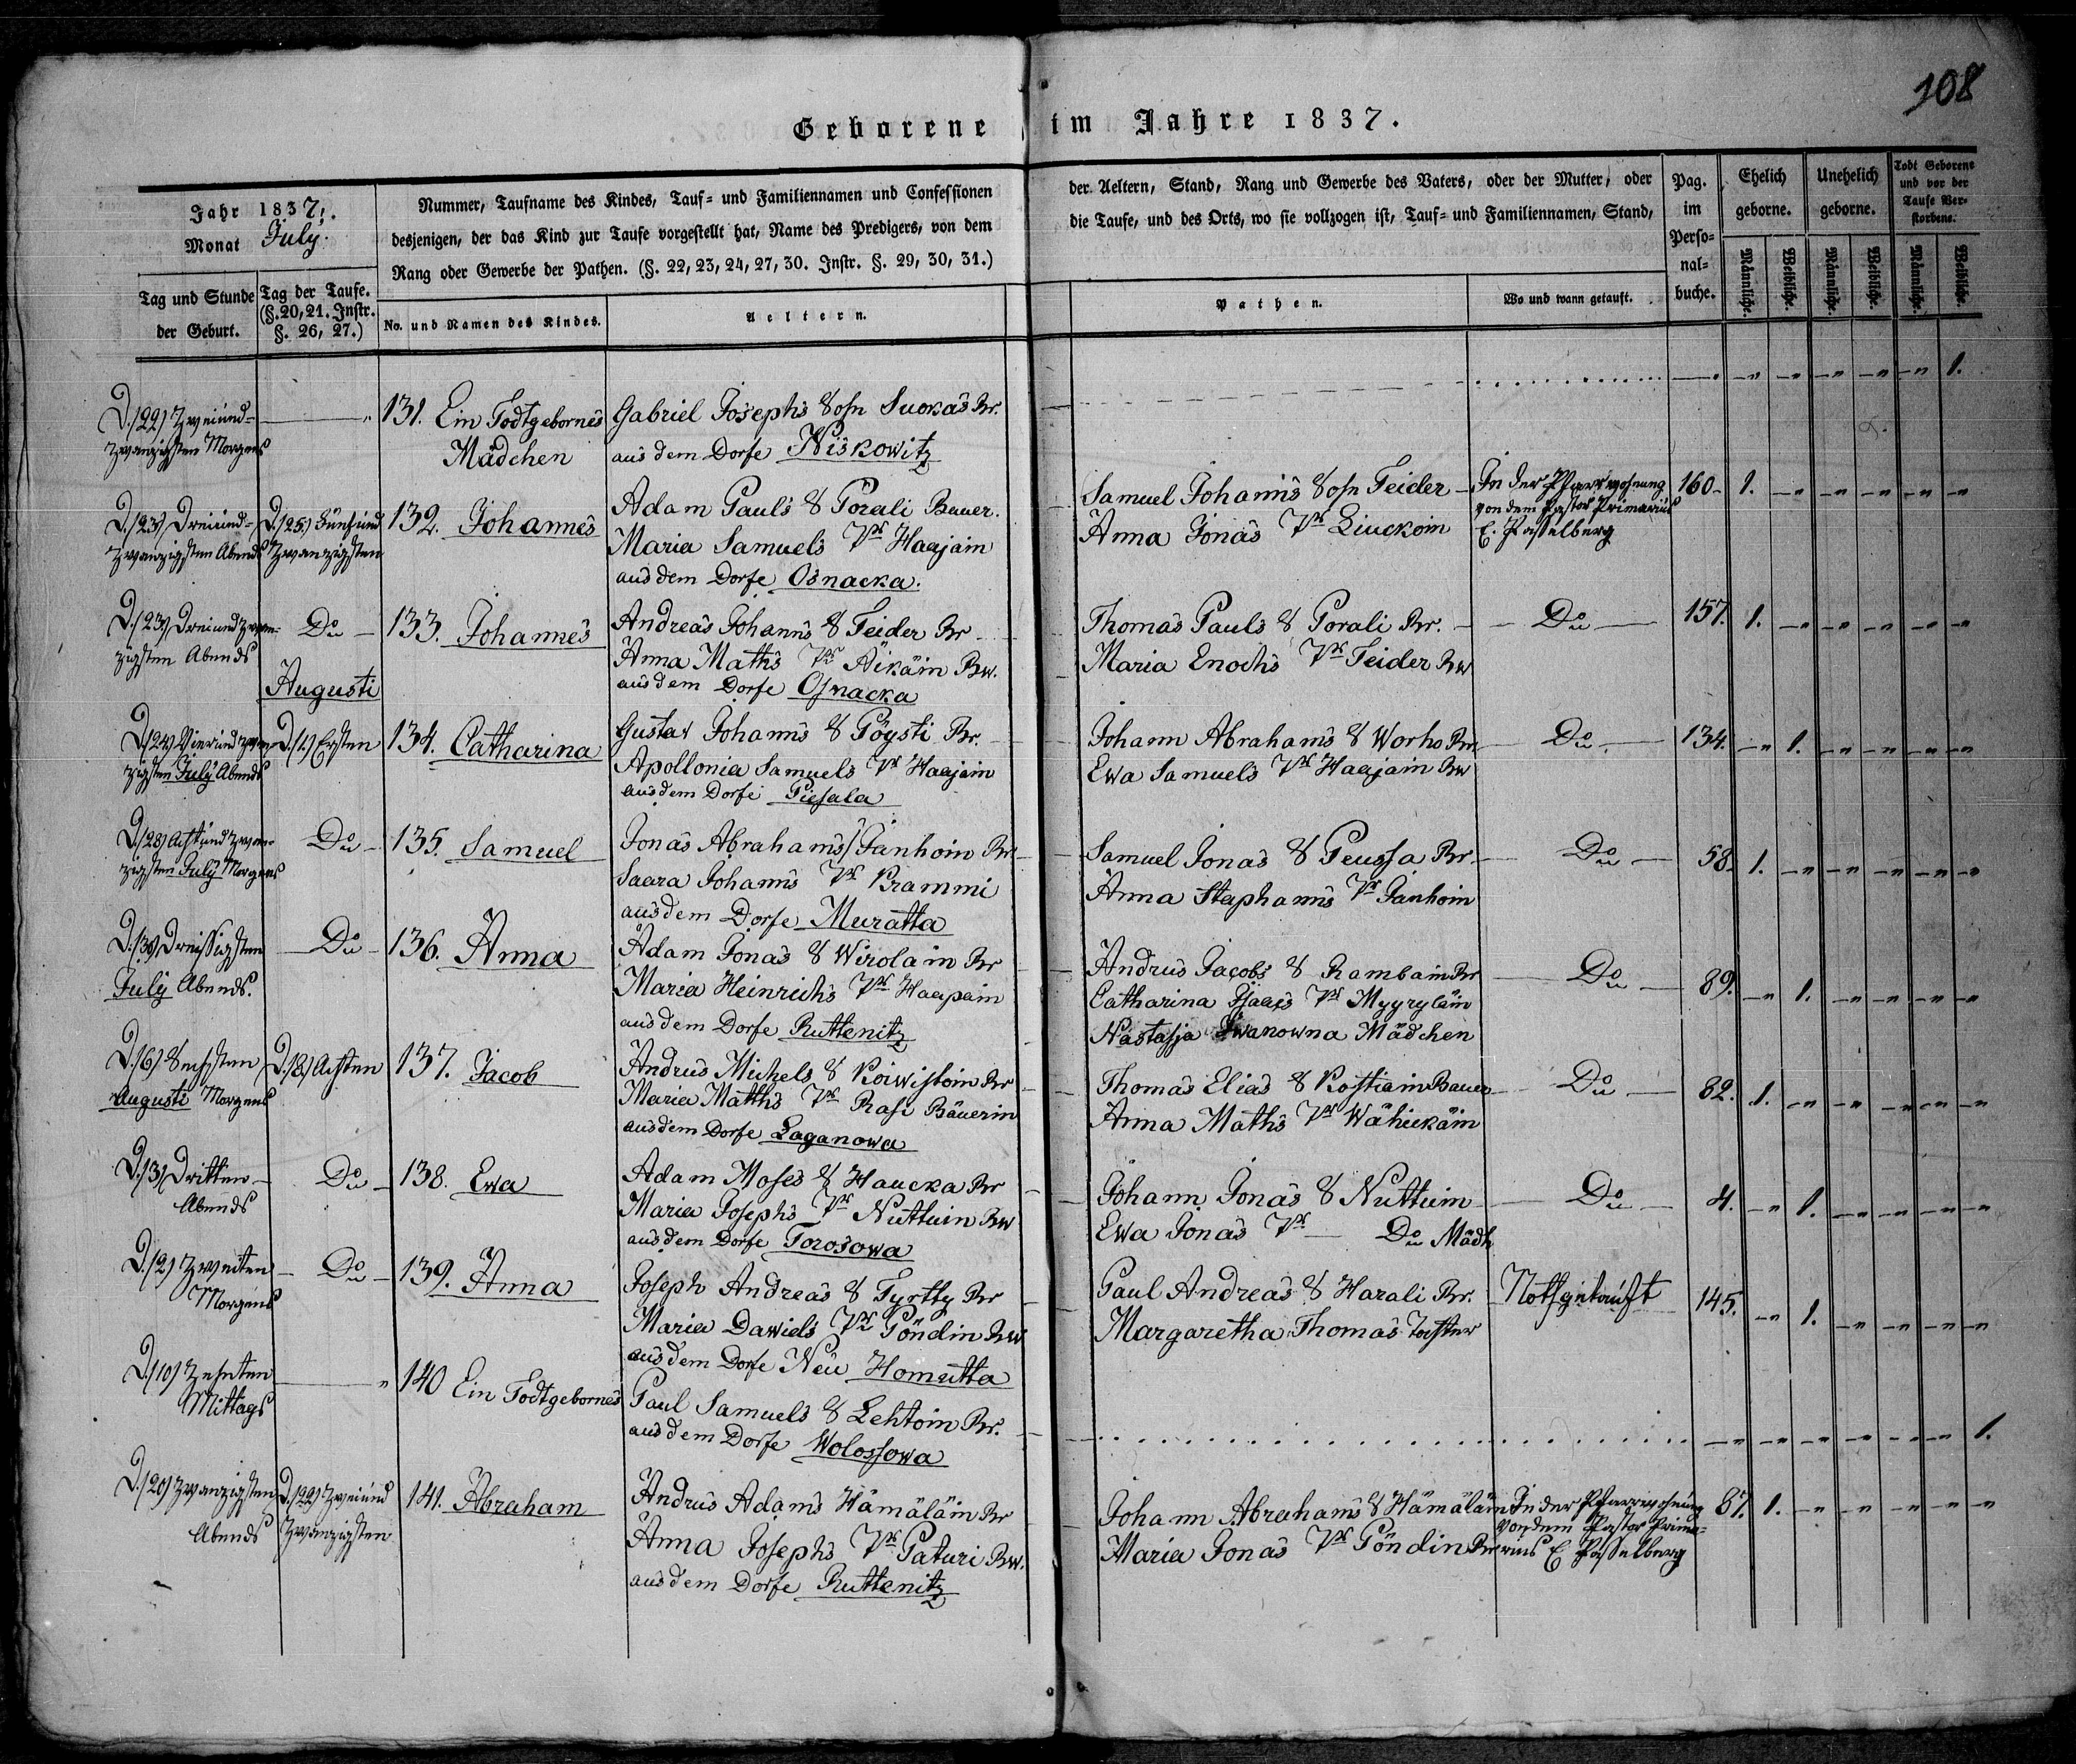 108
Geborene im Jahre 1837.
Jahr 1837.
Monat July.
Tag und Stunde der Geburt.
Tag der Taufe. (§. 20, 21. Instr. §. 26, 27.)
Nummer, Taufname des Kindes, Tauf- und Familiennamen und Confessionen der Aeltern, Stand, Rang und Gewerbe des Vaters, oder der Mutter, oder
desjenigen, der das Kind zur Taufe vorgestellt hat, Name des Predigers, von dem die Taufe, und des Orts, wo sie vollzogen ist, Tauf- und Familiennamen, Stand,
Rang oder Gewerbe der Pathen. (§. 22, 23, 24, 27, 30. Instr. §. 29, 30, 31.)
No. und Namen des Kindes.
Aeltern.
Pathen.
Wo und wann getauft.
Pag. im Perso-nal-buche.
Ehelich geborne.
Unehelich geborne.
Todt Geborene und vor der Taufe Ver-storbene.
Männliche. Weibliche. Männliche. Weibliche. Männliche. Weibliche.
D. /22/ Zweiund-
zwanzigsten Morgens
131. Ein Todtgebornes
Mädchen
Gabriel Josephs Sohn Suokas Br.
aus dem Dorfe Niskowitz
1.
D. /23/ Dreiund-
zwanzigsten Abends
D. /25/ Fünfund
zwanzigsten
132. Johannes
Adam Pauls S Porali Bauer.
Maria Samuels Tr Haajain
aus dem Dorfe Osnacka.
Samuel Johanns Sohn Teider
Anna Jonas Tr Liuckoin
In der Pfarrwohnung
von dem Pastor Primarius
E. Passelberg
160. 1.
D. /23/ Dreiundzwan-
zigsten Abends
Do
133. Johannes
Andreas Johanns S Teider Br
Anna Maths Tr Äikäin Bw.
aus dem Dorfe Osnacka
Thomas Pauls S Porali Br.
Maria Enochs Tr Teider Bw
Do
157. 1.
Augusti
D. /24/ Vierundzwan-
zigsten July Abends
D. /1/ Ersten
134. Catharina
Gustav Johanns S Pöysti Br.
Apollonia Samuels Tr Haajain
aus dem Dorfe Piesala
Johann Abrahams S Worho Br.
Ewa Samuels Tr Haajain Bw
Do.
134. 1.
D. /28/ Achtundzwan-
zigsten July Morgens
Do
135. Samuel
Jonas Abrahams S Janhoin Br
Saara Johanns Tr Prammi
aus dem Dorfe Muratta
Samuel Jonas S Peussa Br.
Anna Staphanns Tr Janhoin
Do
58. 1.
D. /30/ Dreissigsten
July Abends.
Do
136. Anna
Adam Jonas S Wirolain Br
Maria Heinrichs Tr Haapain
aus dem Dorfe Ruttenitz
Andrus Jacobs S Rambain Br
Catharina Isaaks Tr Myyryläin
Nastasja Iwanowna Mädchen
Do
89. 1.
D. /6/ Sechsten
Augusti Morgens
D. /8/ Achten
137. Jacob
Andrus Michels S Koiwistoin Br
Maria Matths Tr Rasi Bäuerin
aus dem Dorfe Laganowa
Thomas Elias S Kostiain Bauer
Anna Maths Tr Wähickäin
Do
82. 1.
D. /3/ Dritten
Abends
Do
138. Ewa
Adam Moses S Haucka Br
Maria Josephs Tr Nuttuin Bw
aus dem Dorfe Torosowa
Johann Jonas S Nuttuin
Ewa Jonas Tr Do Mädch
Do
4. 1.
D. /2/ Zweiten
Morgens
Do
139. Anna
Joseph Andreas S Tyrtty Br
Maria Dawids Tr Pöndin Bw
aus dem Dorfe Neu Homutta
Paul Andreas S Harali Br.
Margaretha Thomas Tochter
Nothgetauft
145. 1.
D. /10/ Zehnten
Mittags
140 Ein Todtgebornes
Paul Samuels S Lehtoin Br.
aus dem Dorfe Wolossowa
1.
D. /20/ Zwanzigsten
Abends
D. /22/ Zweiund
zwanzigsten
141. Abraham
Andrus Adams Hämäläin Br
Anna Josephs Tr Paturi Bw.
aus dem Dorfe Ruttenitz
Johann Abrahams S Hämäläin
Maria Jonas Tr Pöndin Bw
In der Pfarrwohnung
von dem Pastor Prima-
rius E. Passelberg
87. 1.